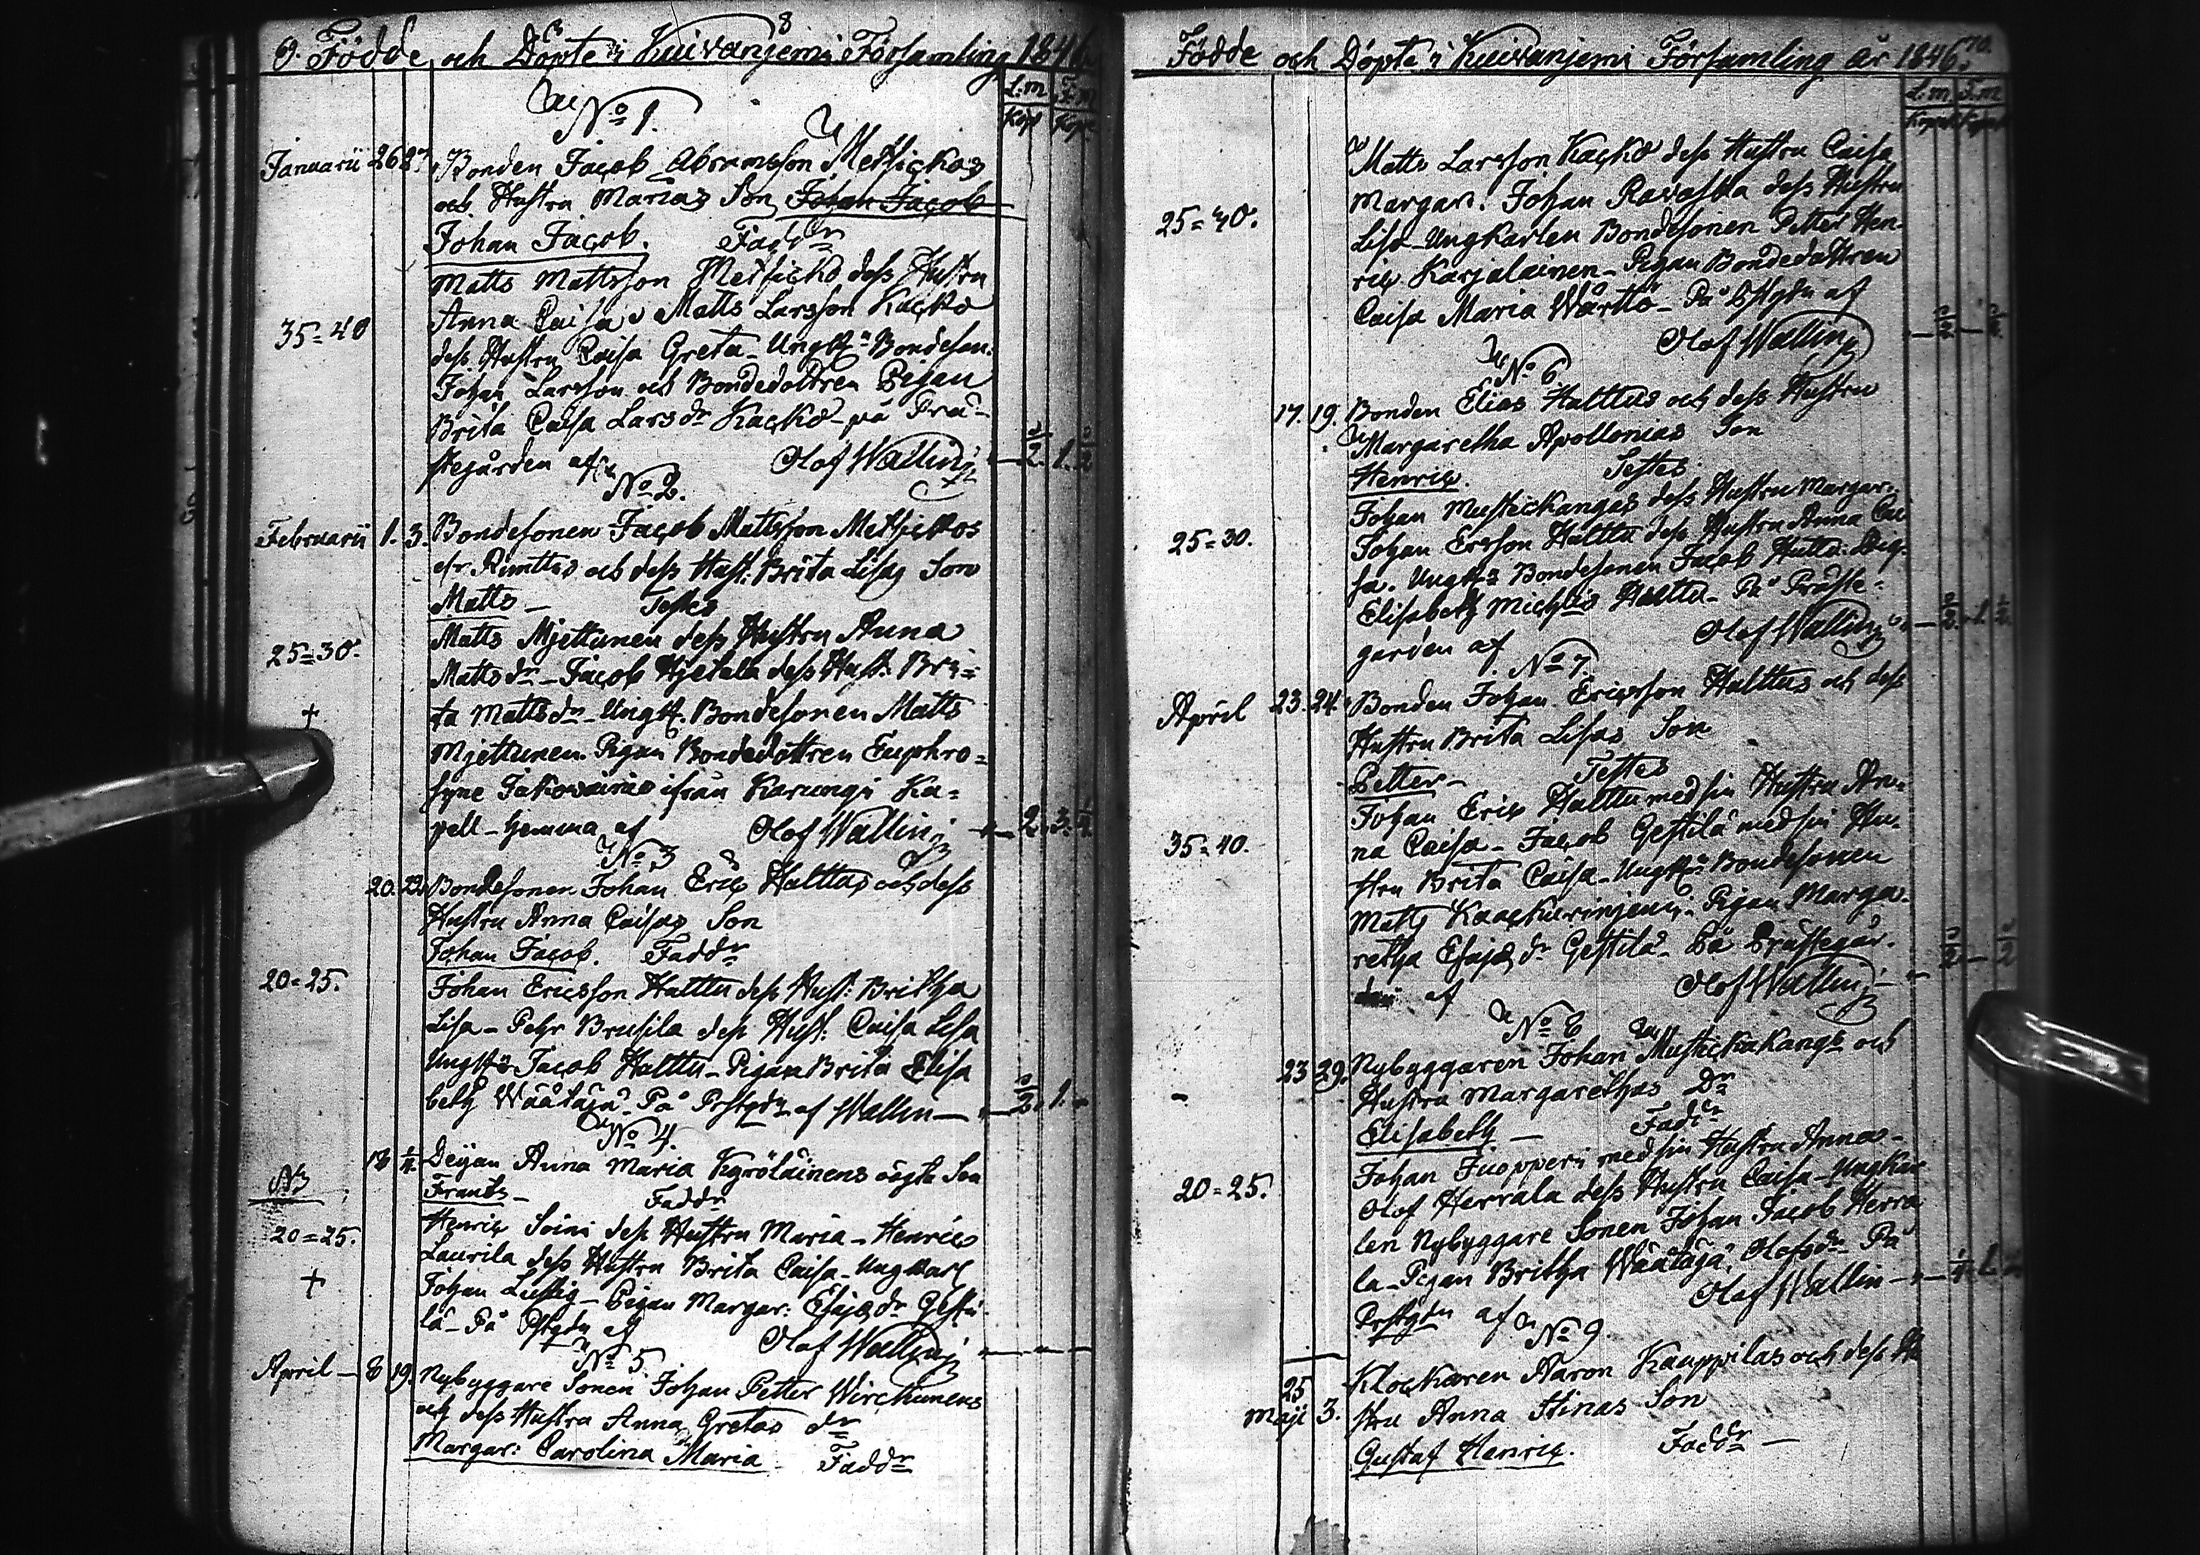 9. Födde och Döpte i Kuivanjemi Församling 1846.
L:m
Kop
No 1.
Januarii 26 27. Bonden Jacob Abramsson Metsickos
och Hustru Marias Son Johan Jacob
Johan Jacob. Faddr
Matts Mattsson Metsicko dess Hustru
35=40 Anna Caisa Matts Larsson Kacko
dess Hustru Caisa Greta - Bondeson.
Johan Larsson och Bondedottren Pigan
Brita Caisa Larsdr Kacko - på Prä-
stegården af Olof Wallin
No 2.
Februarii 1. 3. Bondesonen Jacob Mattsson Metsickos
och dess Hust: Brita Lisas Son
Matts - Testes
Matts Mjettunen dess Hustru Anna
25=30. Mattsdr - Jacob dess Hust: Bri=
ta Mattsdr - Ungk. Bondesonen Matts
+ Mjettunen. Pigan Bondedottren Euphro=
syne ifrån Karungi Ka=
pell - hemma af Olof Wallin
No 3
20. 22. Bondesonen Johan Eric Halttus och dess
Hustru Anna Caisas Son
Johan Jacob. Faddr
20=25. Johan Ericsson Halttu dess Hust: Britha
Lisa - Pehr Brusila dess Hust. Caisa Lisa
Jacob Halttu - Pigan Brita Elisa
beth Wäätäjä - På Prstgdn af Wallin
No 4.
18 Pigan Anna Maria Kyröläinens oägta Son
Frants - Faddr
20=25. Henric Soini dess Hustru Maria - Henric
Laurila dess Hustru Brita Caisa - Ungkarl
+ Johan Lustig - Pigan Margar: Esajædr Gesti
lä - På af Olof Wallin
No 5
April - 8 19. Nybyggare Sonen Johan Petter Wirckunens
och dess Hustru Anna Gretas dr
Margar: Carolina Maria - Faddr
Födde och Döpte i Kuivanjemi Församling år 1846. 10.
L:m
Matts Larsson Kacko dess Hustru Caisa
Margar. Johan Ravaska dess Hustru
25=40. Lisa - Ungkarlen Bondesonen Petter Hen-
ric Karjalainen - Pigan Bondedottren
Caisa Maria Wartto - På af
Olof Wallin
No 6
17. 19. Bonden Elias Halttus och dess Hustru
Margaretha Apollonias Son
Henric. Testes
Johan Mustickangas dess Hustru Margar.
25=30. Johan Ersson Halttu dess Hustru Anna Cai
sa. Bondesonen Jacob Halttu. Pig.
Elisabeth Halttu - På Präste-
garden af Olof Wallin
No 7
April 23. 24. Bonden Johan Ericsson Halttus och dess
Hustru Brita Lisas Son
Petter - Testes
Johan Eric Halttu med sin Hustru An-
35=40. na Caisa - Jacob Gestilä med sin Hu-
stru Brita Caisa - Bondesonen
Matts - Pigan Marga-
retha Esajædr Gestilä - På Prästegår-
den af Olof Wallin
No 8
23 29. Nybyggaren Johan Mustickakangs och
Hustru Margarethas Dr
Elisabeth - Faddr
Johan Juopperi med sin Hustru Anna -
20=25. Olof Herrala dess Hustru Caisa - Ungkar
len Nybyggare Sonen Johan Jacob Herra
la - Pigan Britha Wäätäjä, Olofsdr - På
Prstgdn af Olof Wallin
No 9
25
Klockaren Aaron Kauppilas och dess Hu
Maji 3. stru Anna Stinas Son
Gustaf Henric. Faddr -